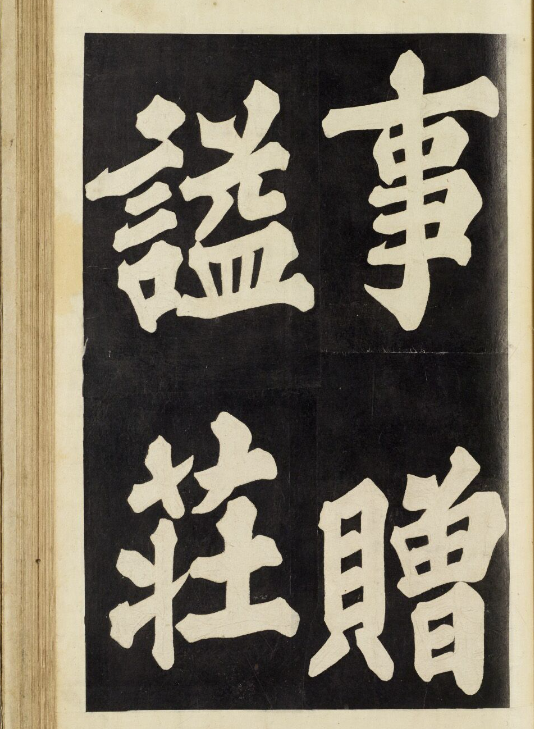 事贈
謚莊